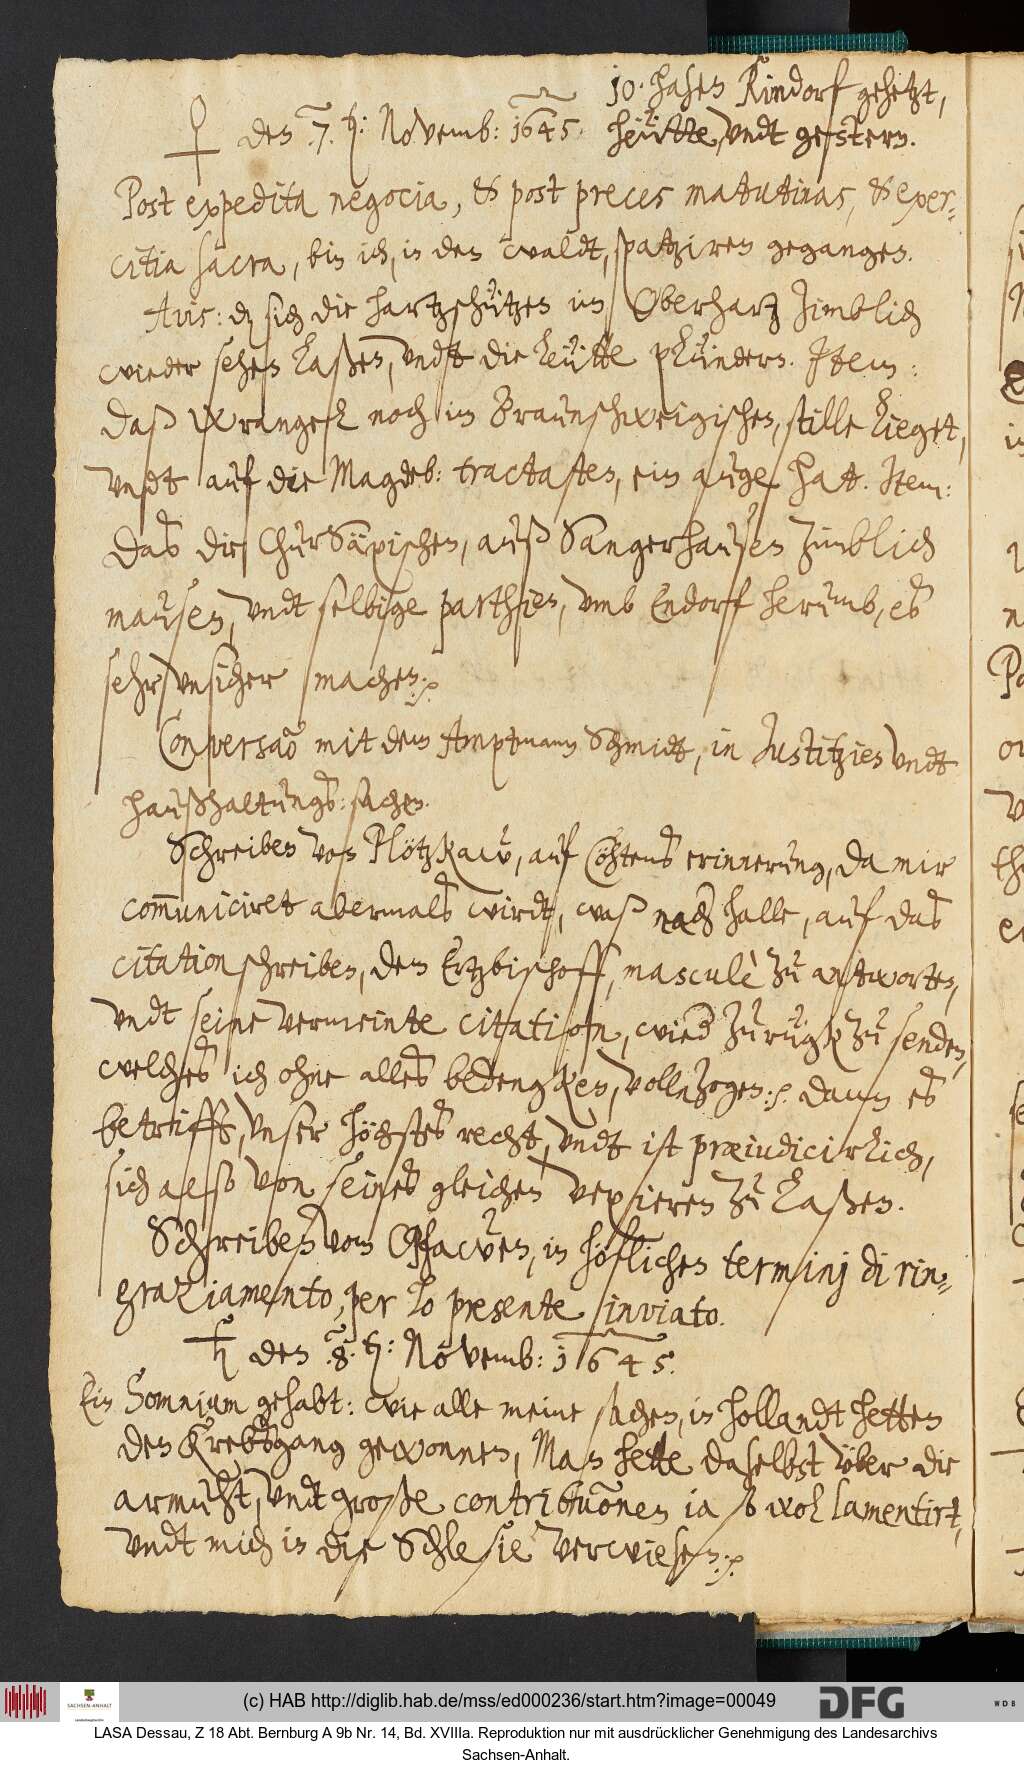 10. hasen Rindorf gehetzt,
♀ den .7. t: Novemb: 1645. heütte, vndt gestern.
Post expedita negocia, & post preces matutinas, & exer-
citia sacra, bin ich, in den waldt, spatziren gegangen.
Avis: dz sich die hartzschützen im Oberhartz zimblich
wieder sehen laßen, vndt die leütte plündern. Item:
daß Wrangel noch im Braunschweigischen, stille lieget,
vndt auf die Magdeb: tractaten, ein auge hatt. Item:
das die ChurSäxischen, auß Sangerhausen zimblich
mausen, vndt selbige parthien, vmb Endorff herumb, es
sehr vnsicher machen.
Conversaõ mit dem Amptmann Schmidt, in Justitzien vndt
haußhaltungs: sachen.
Schreiben von Plötzkaw, auf Cöhtens erinnerung, da mir
com̃uniciret abermals wirdt, waß nach halle, auf das
citation schreiben, dem Ertzbischoff, masculè zu antworten,
vndt seine vermeinte citation, wied zurügk zu senden,
welches ich ohne alles bedengken, vollnzogen: dann es
betrifft, vnser höchstes recht, vndt ist præiudicirlich,
sich also von seines gleichen vexieren zu laßen.
Schreiben vom Pfawen, in höflichen terminj di rin-
graziamento, per lo presente inviato.
♄ den .8. t: Novemb: 1645.
Ein Somnium gehabt: wie alle meine sachen, in hollandt hetten
den Krebsgang gewonnen, Man hette daselbst über die
armuht, vndt große contribuõnen ia so wol lamentirt,
vndt mich in die Schlesie verwiesen.
(c) HAB http://diglib.hab.de/mss/ed000236/start.htm?image=00049
SACHSEN-ANHALT
DFG
WDB
LASA Dessau, Z 18 Abt. Bernburg A 9b Nr. 14, Bd. XVIIIa. Reproduktion nur mit ausdrücklicher Genehmigung des Landesarchivs
Sachsen-Anhalt.